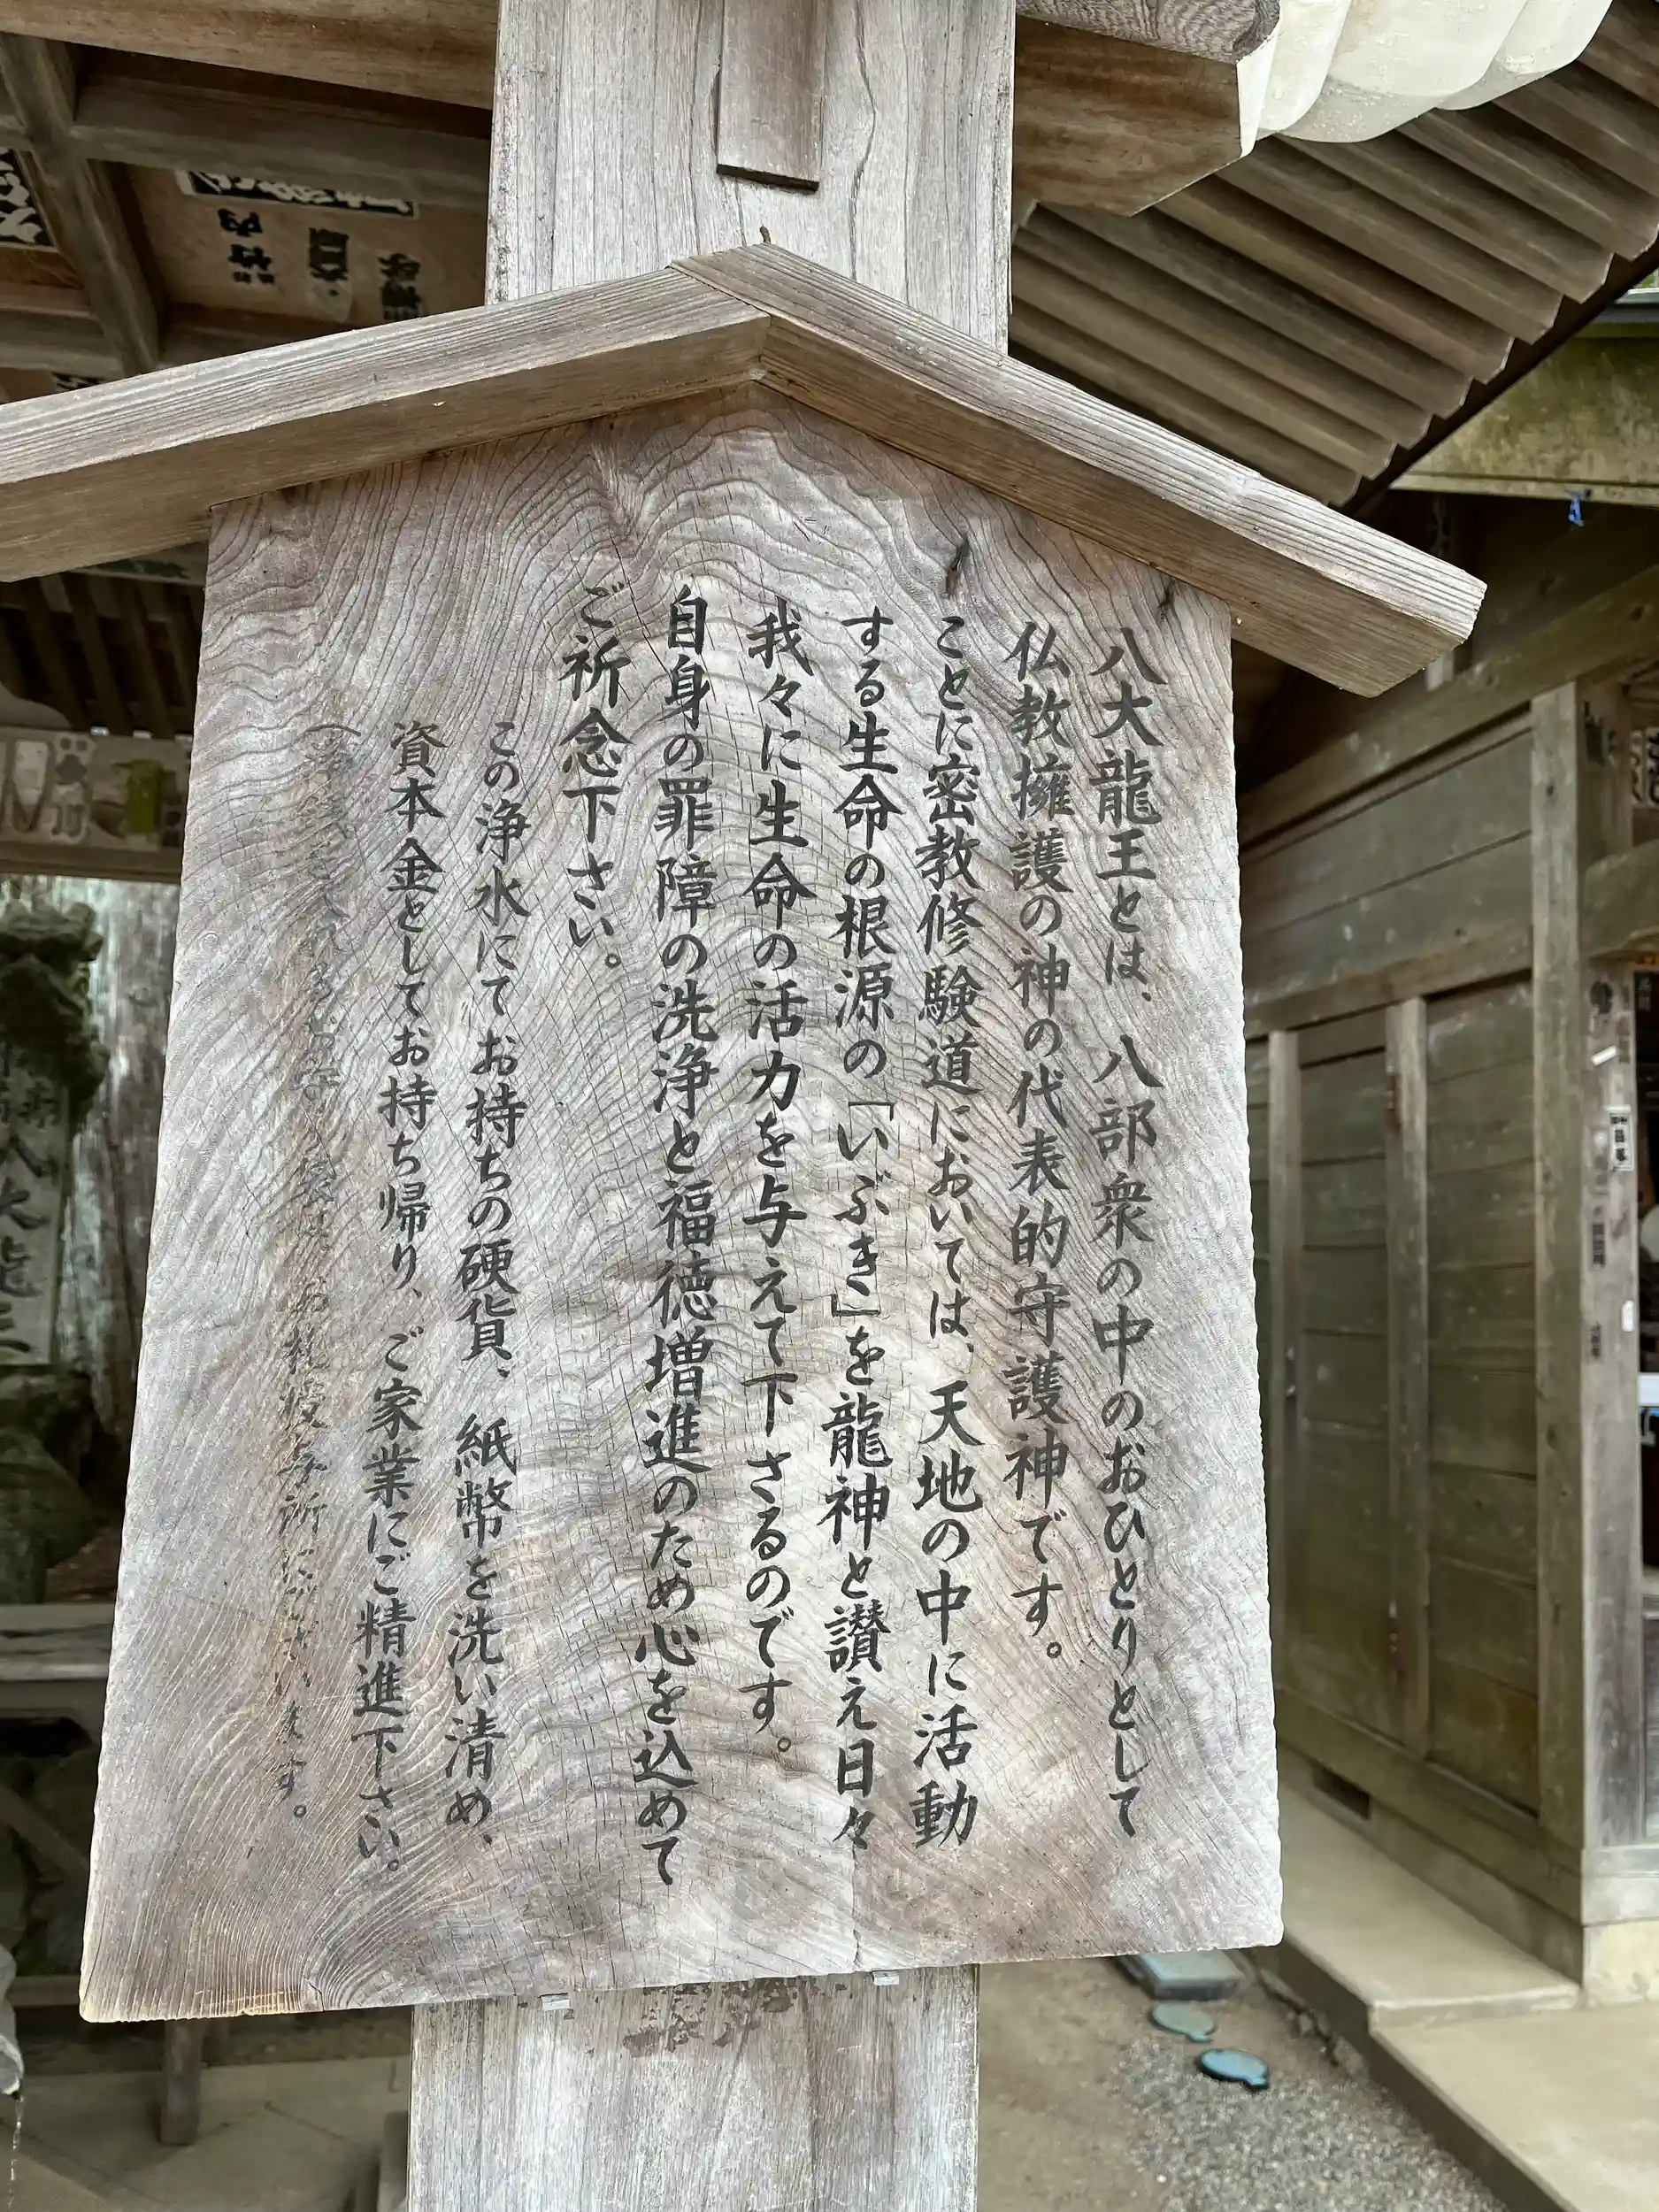 八大龍王とは、八部衆の中のおひとりとして
仏教擁護の神の代表的守護神です。
ことに密教修験道においては、天地の中に活動
する生命の根源の「いぶき」を龍神と讃え日々
我々に生命の活力を与えて下さるのです。
自身の罪障の洗浄と福徳増進のため心を込めて
ご祈念下さい。
この浄水にてお持ちの硬貨、紙幣を洗い清め、
資本金としてお持ち帰り、ご家業にご精進下さい。
竹内
八大龍王